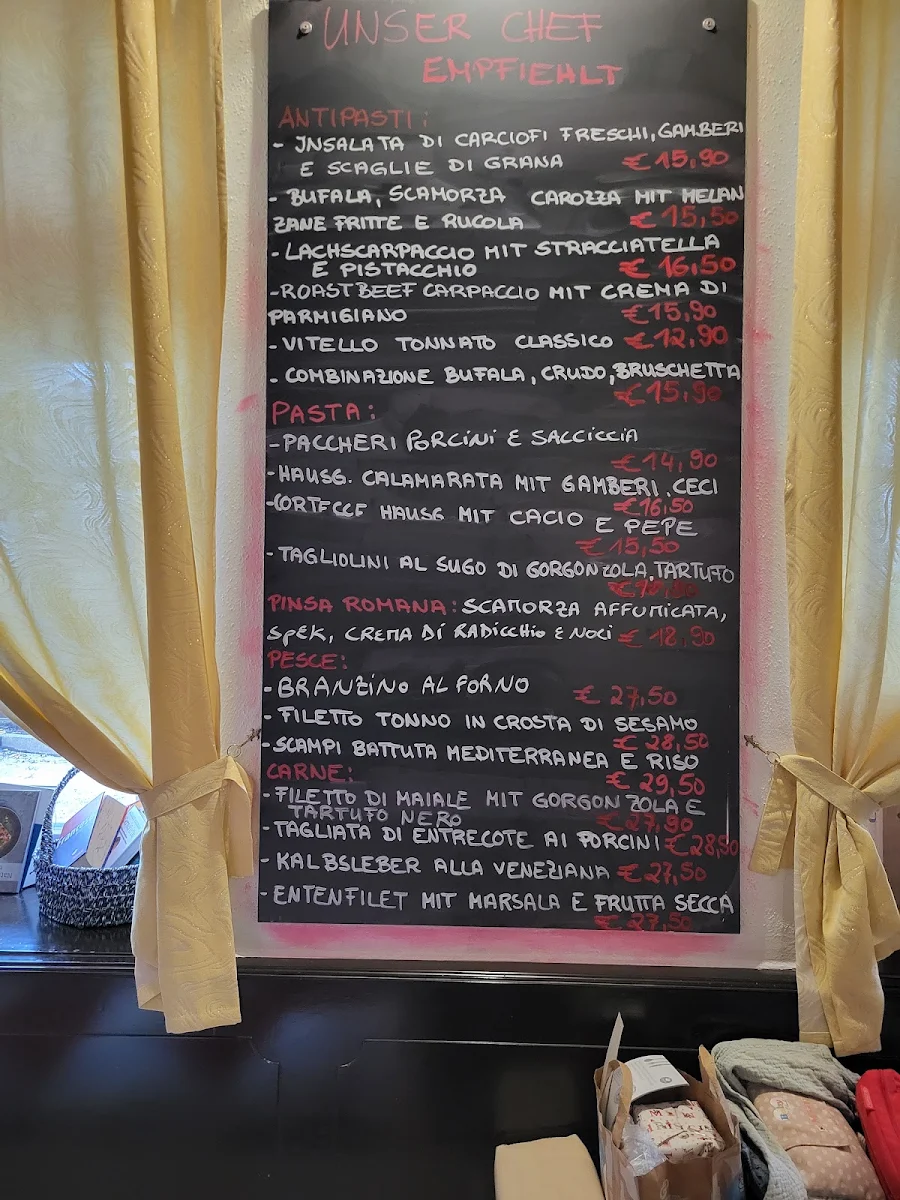 UNSER CHEF
EMPFIEHLT
ANTIPASTI:
- INSALATA DI CARCIOFI FRESCHI, GAMBERI
E SCAGLIE DI GRANA € 15,90
- BUFALA, SCAMORZA CAROZZA MIT MELAN
ZANE FRITTE E RUCOLA € 15,50
- LACHSCARPACCIO MIT STRACCIATELLA
E PISTACCHIO € 16,50
- ROASTBEEF CARPACCIO MIT CREMA DI
PARMIGIANO € 15,90
- VITELLO TONNATO CLASSICO € 12,90
- COMBINAZIONE BUFALA, CRUDO, BRUSCHETTA
€ 15,90
PASTA:
- PACCHERI PORCINI E SACCICCIA
€ 14,90
- HAUSG. CALAMARATA MIT GAMBERI, CECI
€ 16,50
- HAUSG MIT CACIO E PEPE
€ 15,50
- TAGLIOLINI AL SUGO DI GORGONZOLA, TARTUFO
PINSA ROMANA: SCAMORZA AFFUMICATA,
SPEK, CREMA DI RADICCHIO E NOCI € 12,90
PESCE:
- BRANZINO AL FORNO € 27,50
- FILETTO TONNO IN CROSTA DI SESAMO
€ 28,50
- SCAMPI BATTUTA MEDITERRANEA E RISO
€ 29,50
CARNE:
- FILETTO DI MAIALE MIT GORGONZOLA E
TARTUFO NERO € 27,90
- TAGLIATA DI ENTRECOTE AI PORCINI € 28,90
- KALBSLEBER ALLA VENEZIANA € 27,50
- ENTENFILET MIT MARSALA E FRUTTA SECCA
€ 27,50